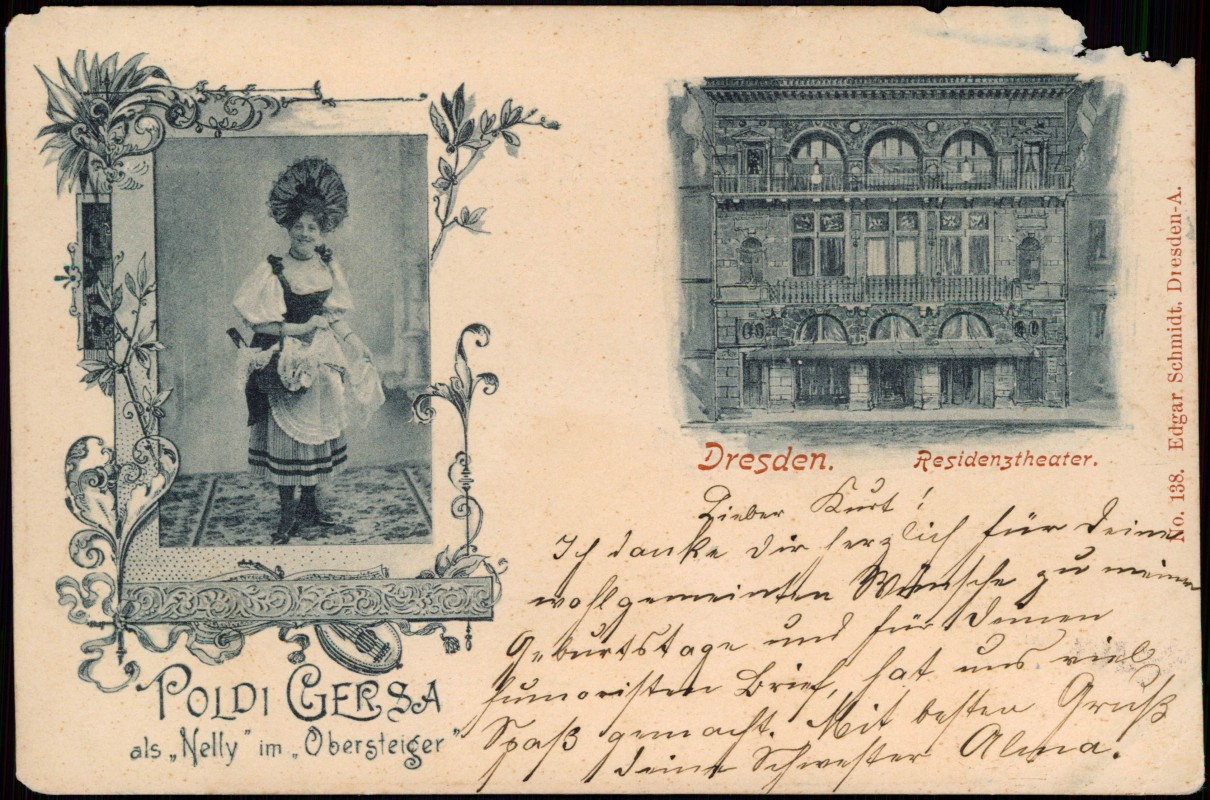 POLDI GERSA
als „Nelly” im „Obersteiger”
Dresden. Residenztheater.
No. 138. Edgar Schmidt, Dresden-A.
Lieber Kurt!
Ich danke Dir herzlich für Deine
wohlgemeinten Wünsche zu meinem
Geburtstage und für Deinen
humoristen Brief, hat uns viel
Spaß gemacht. Mit besten Gruß
Deine Schwester Alma.